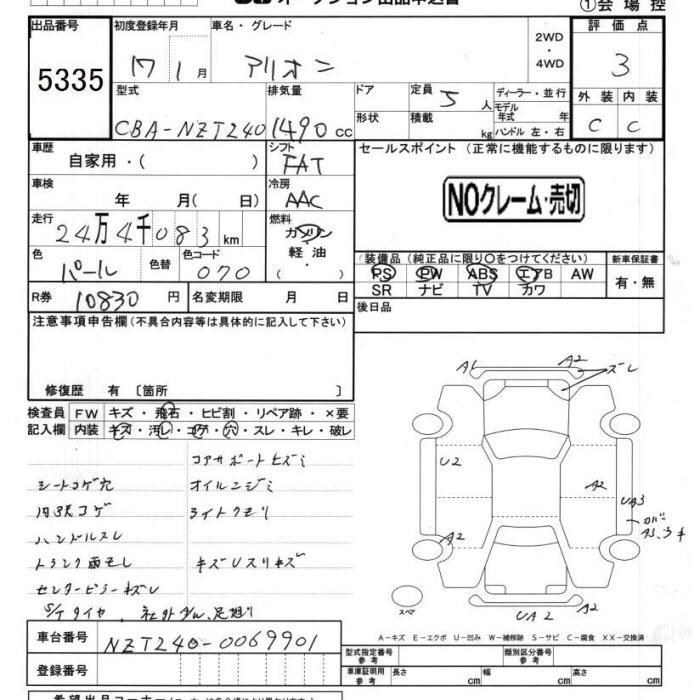 オークション出品申込書
①会場控
出品番号 初度登録年月 車名・グレード 2WD ・ 4WD 評価点
5335 17 1月 アリオン 3
型式 排気量 ドア 定員 5人 ディーラー・並行 外装 内装
CBA-NZT240 1490cc 形状 積載 kg モデル年式 年 ハンドル 左・右 C C
車歴 シフト セールスポイント (正常に機能するものに限ります)
自家用・( ) FAT
車検 冷房 NOクレーム・売切
年 月( 日) AAC
走行 燃料
24万4千083km ガソリン
色 色替 色コード 軽油 (装備品 (純正品に限り〇をつけてください) 新車保証書
パール 070 ( ) PS PW ABS エアB AW 有・無
SR ナビ TV カワ
R券 10830円 名変期限 月 日 後日品
注意事項申告欄(不具合内容等は具体的に記入して下さい)
修復歴 有 〔箇所 〕
検査員 FW キズ・飛石・ヒビ割・リペア跡・×要
記入欄 内装 キズ・汚レ・コゲ・穴・スレ・キレ・破レ
コアサポートヒズミ
シートコゲ穴 オイルニジミ
内張コゲ ライトクモリ
ハンドルスレ
トランク雨モレ キズUスリキズ
センターピラーキズU
S/Tタイヤ、社外ダん、足廻り
A1 A2 ズレ
U2 A2 UA3
カバー
A3、ラキ
A2
スペア UA2 A2
A-キズ E-エクボ U-凹み W-補修跡 S-サビ C-腐食 XX-交換済
車台番号 NZT240-0069901
型式指定番号 参考 類別区分番号 参考
登録番号 車庫証明用 参考 長さ cm 幅 cm 高さ cm